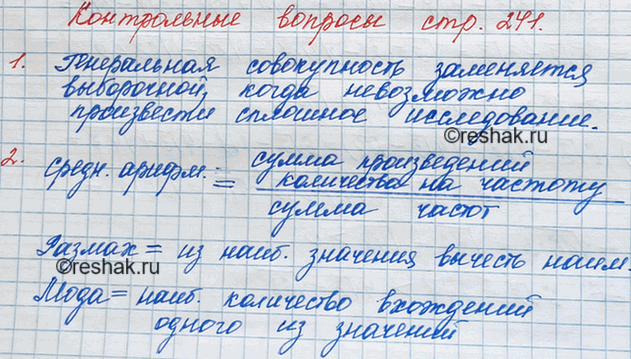 Контрольные вопросы стр. 241.
1. Генеральная совокупность заменяется
выборочной, когда невозможно
произвести сплошное исследование.
©reshak.ru
2. средн. арифм. = сумма произведений
количества на частоту
сумма частот
Размах = из наиб. значения вычесть наим.
©reshak.ru
Мода = наиб. количество вхождений
одного из значений